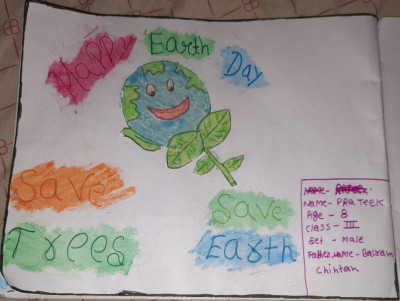 Happy Earth Day
Save
Trees
Save
Earth
Name- PRATEEK
Age - 8
Class - III
Set - Male
Father name - Balram
Chintan